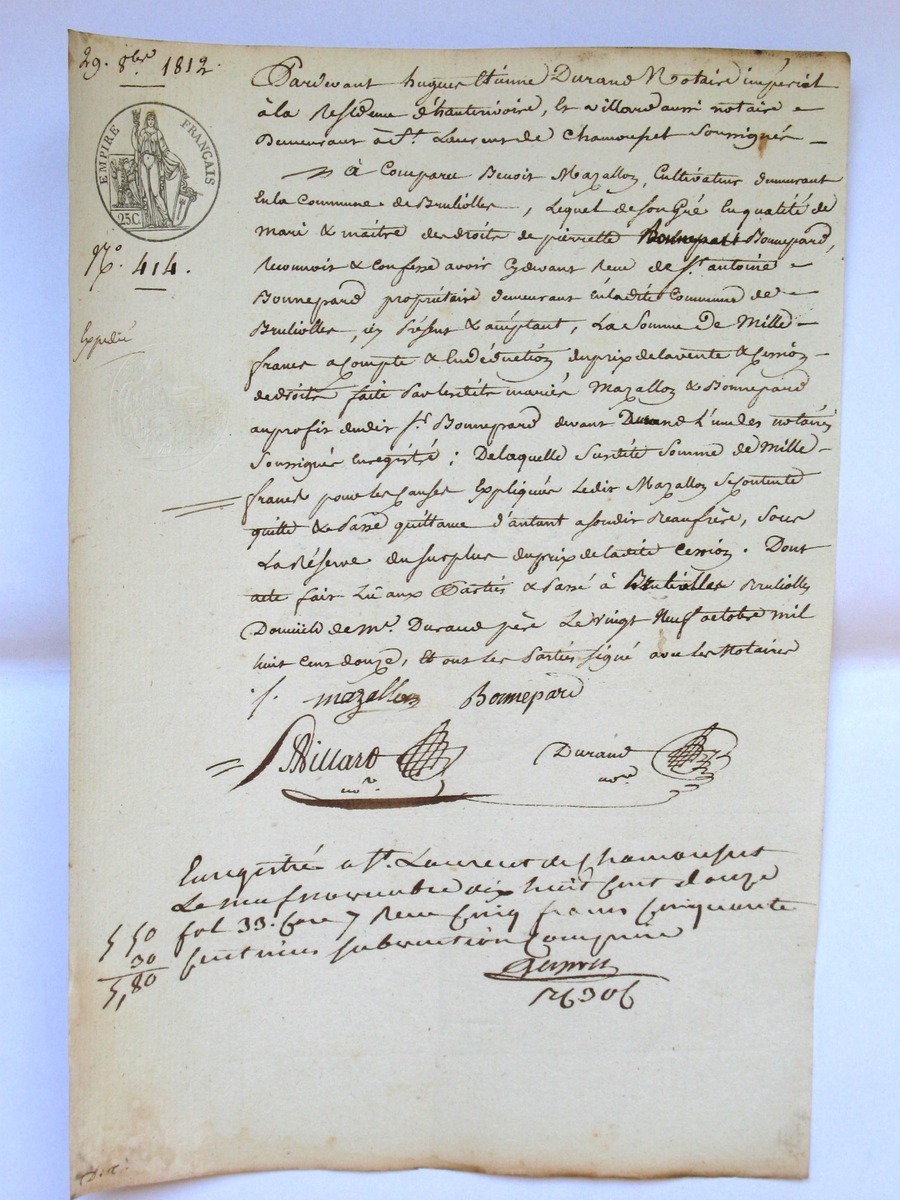 29. 8bre 1812.
EMPIRE FRANÇAIS
25C
N.o 414.
Expedié
Pardevant hugues Etienne Durand Notaire impérial
à la Residence d'hauterivoire, Et villard aussi notaire
Demeurant à St. Laurent de Chamousset Soussignés
à Comparu Benoit Mazallon, Cultivateur demeurant
En la Commune de Brulliolles, Lequel de Son Gré En qualité de
mari & maitre des droits de pierrette Bonnepard,
Reconnoit & Confesse avoir Cydevant Reçu de Sr. antoine
Bonnepard propriétaire demeurant En ladite Commune de
Brulliolles, icy Présent & acceptant, La Somme De Mille
francs acompte & En déduction du prix de la vente & Cession
de droits faite Par lesdits mariés Mazallon & Bonnepard
au profit dudit Sr. Bonnepard devant Durand L'un des notaires
Soussignés Enregistré; De laquelle Susdite Somme de Mille
francs pour les Causes Expliquées Ledit Mazallon Se Contente
quitte & Passe quittance d'autant a Sondit Beaufrère, Sous
La Réserve du Surplus du prix de ladite Cession. Dont
acte fait Lû aux Parties & Passé à Brulliolles
Domicile de Me. Durand père Le Vingt Neuf octobre mil
huit Cent douze, Et ont les Parties signé avec les Notaires
mazallon Bonnepard
Villard
nore
Durand
nore
Enregistré a St. Laurent de Chamousset
Le neuf novembre dix huit Cent douze
fol 33. Case 7 Reçu Cinq francs Cinquante
Centimes subvention Comprise
5 50
30
5,80